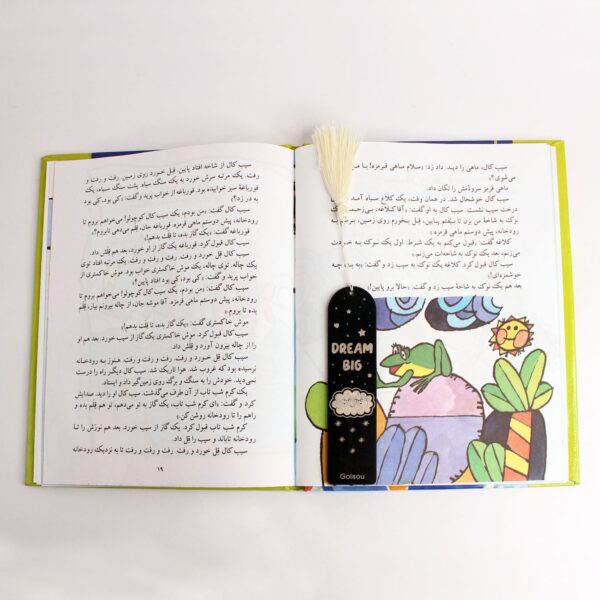 سیب کال از شاخه افتاد پایین. قِل خورد روی زمین. رفت و رفت و
رفت. یک مرتبه سیب کال خورد به یک سنگ سیاه. پشت سنگ سیاه، یک
قورباغهٔ سبز خوابیده بود. قورباغه از خواب پرید و گفت: «کی بود، کی بود
به در زد؟»
سیب کال گفت: «من بودم، یک سیب کال کوچولو! می‌خواهم بروم تا
رودخانه، پیش دوستم ماهی قرمزه. قورباغه جان، قِلم می‌دهی تا بروم؟»
قورباغه گفت: «یک گاز بده، تا قِلت بدهم!»
سیب کال قبول کرد. قورباغه یک گاز از او خورد، بعد هم قِلش داد.
سیب کال قِل خورد. رفت و رفت و رفت. یک مرتبه افتاد توی
یک چاله. توی چاله، یک موش خاکستری خواب بود. موش خاکستری از
خواب پرید و گفت: «کی بود، کی بود افتاد پایین؟»
سیب کال گفت: «من بودم، یک سیب کال کوچولو! می‌خواهم بروم تا
رودخانه، پیش دوستم ماهی قرمزه. آقا موشه جان، از چاله بیرونم بیار، قِلم
بده تا بروم.»
موش خاکستری گفت: «یک گاز بده تا قِلت بدهم!»
سیب کال قبول کرد. موش خاکستری یک گاز از سیب خورد، بعد هم او
را از چاله بیرون آورد و قِلش داد.
سیب کال قِل خورد. رفت و رفت و رفت. هنوز به رودخانه
نرسیده بود که غروب شد. هوا تاریک شد. سیب کال دیگر راه را درست
نمی‌دید. خودش را به سنگ و برگ روی زمین گیر داد و ایستاد.
یک کرم شب تاب از آن طرف می‌گذشت. سیب کال او را دید. صدایش
کرد و گفت: «ای کرم شب تاب، یک گاز به تو می‌دهم، تو هم قِلم بده و
راهم را تا رودخانه روشن کن.»
کرم شب تاب قبول کرد. یک گاز از سیب خورد، بعد هم نورش را تا
رودخانه تاباند و سیب را قِل داد.
سیب کال قِل خورد و رفت. رفت و رفت و رفت تا به نزدیک رودخانه
۱۹
سیب کال، ماهی را دید. داد زد: «سلام ماهی قرمزه! با من
می‌شوی؟»
ماهی قرمز سرودُمش را تکان داد.
سیب کال خوشحال شد. در همان وقت، یک کلاغ سیاه آمد
درخت سیب نشست. سیب کال به او گفت: «آقا کلاغه، بی‌زحمت
نوک به شاخهٔ من بزن تا بیُفتم پایین، قِل بخورم روی زمین، بروم تا
رودخانه، پیش دوستم ماهی قرمزه.»
کلاغه گفت: «قبول می‌کنم به یک شرط. اول یک نوک به خودت
می‌زنم، بعد یک نوک به شاخه‌ات می‌زنم.»
سیب کال قبول کرد. کلاغه یک نوک به سیب زد و گفت: «به به، چه
خوشمزه‌ای!»
بعد هم یک نوک به شاخهٔ سیب زد و گفت: «حالا برو پایین!»
DREAM
BIG
Golsou